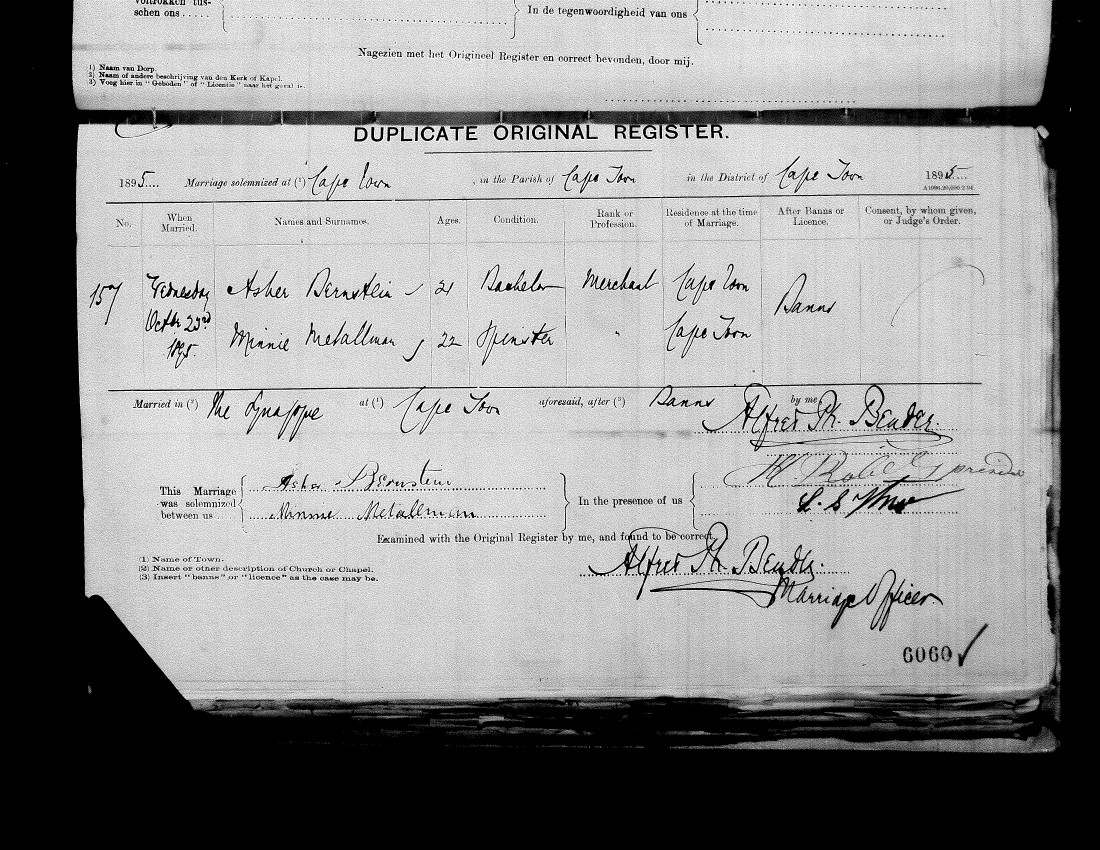 voltrokken tus-
schen ons ..... In de tegenwoordigheid van ons
Nagezien met het Origineel Register en correct bevonden, door mij.
1) Naam van Dorp.
2) Naam of andere beschrijving van den Kerk of Kapel.
3) Voeg hier in "Geboden" of "Licentie" naar het geval is.
DUPLICATE ORIGINAL REGISTER.
1895.... Marriage solemnized at (1) Cape Town , in the Parish of Cape Town in the District of Cape Town 1895....
No. When Married. Names and Surnames. Ages. Condition. Rank or Profession. Residence at the time of Marriage. After Banns or Licence. Consent, by whom given, or Judge's Order.
157 Wednesday Octbr 23rd 1895. Asher Bernstein 21 Bachelor Merchant Cape Town Banns
Minnie Metallman 22 Spinster " Cape Town
Married in (2) The Synagogue at (1) Cape Town aforesaid, after (3) Banns by me Alfred Ph. Bender.
This Marriage was solemnized between us Asher Bernstein
Minnie Metallman
In the presence of us
L. S.
Examined with the Original Register by me, and found to be correct,
Alfred Ph. Bender.
Marriage Officer.
(1) Name of Town.
(2) Name or other description of Church or Chapel.
(3) Insert "banns" or "licence" as the case may be.
6060 ✓